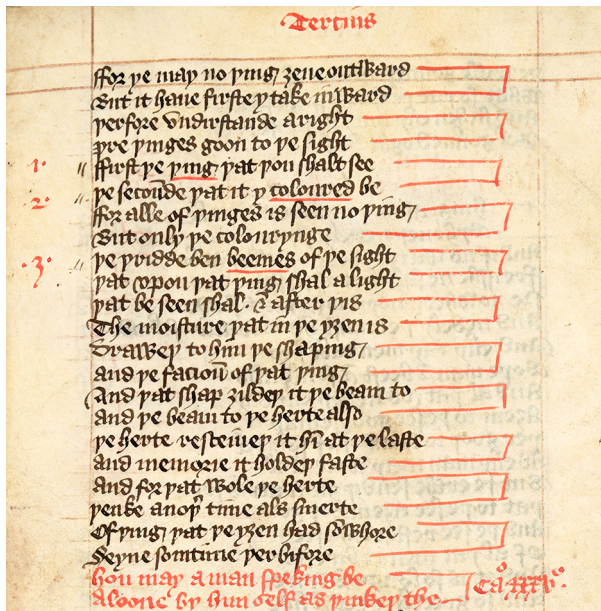 Tercius
ffor ye may no ying ȝeue outward
But it haue firste y take inward
yerfore vndirstande aright
yre yinges goon to ye sight
1. ffirst ye ying yat you shalt see
2. ye secoūde yat it y coloured be
ffor alle of yinges is seen no ying
But only ye colourynge
3. ye yridde ben beemes of ye sight
yat vpon yat ying shal a light
yat be seen shal · & after yis
The moisture yat in ye yȝen is
Drawey to him ye shaping
and ye facioū of yat ying
And yat shap ȝildey it ye beam to
and ye beam to ye herte also
ye herte resceiuey it hī at ye laste
and memorie it holdey faste
and for yat wole ye herte
yenke anoyͬ time als smerte
Of ying yat ye yȝen had sūwhore
Seyne somtime yer bifore
hou may a man speking be
aloone by him self as yinkey the